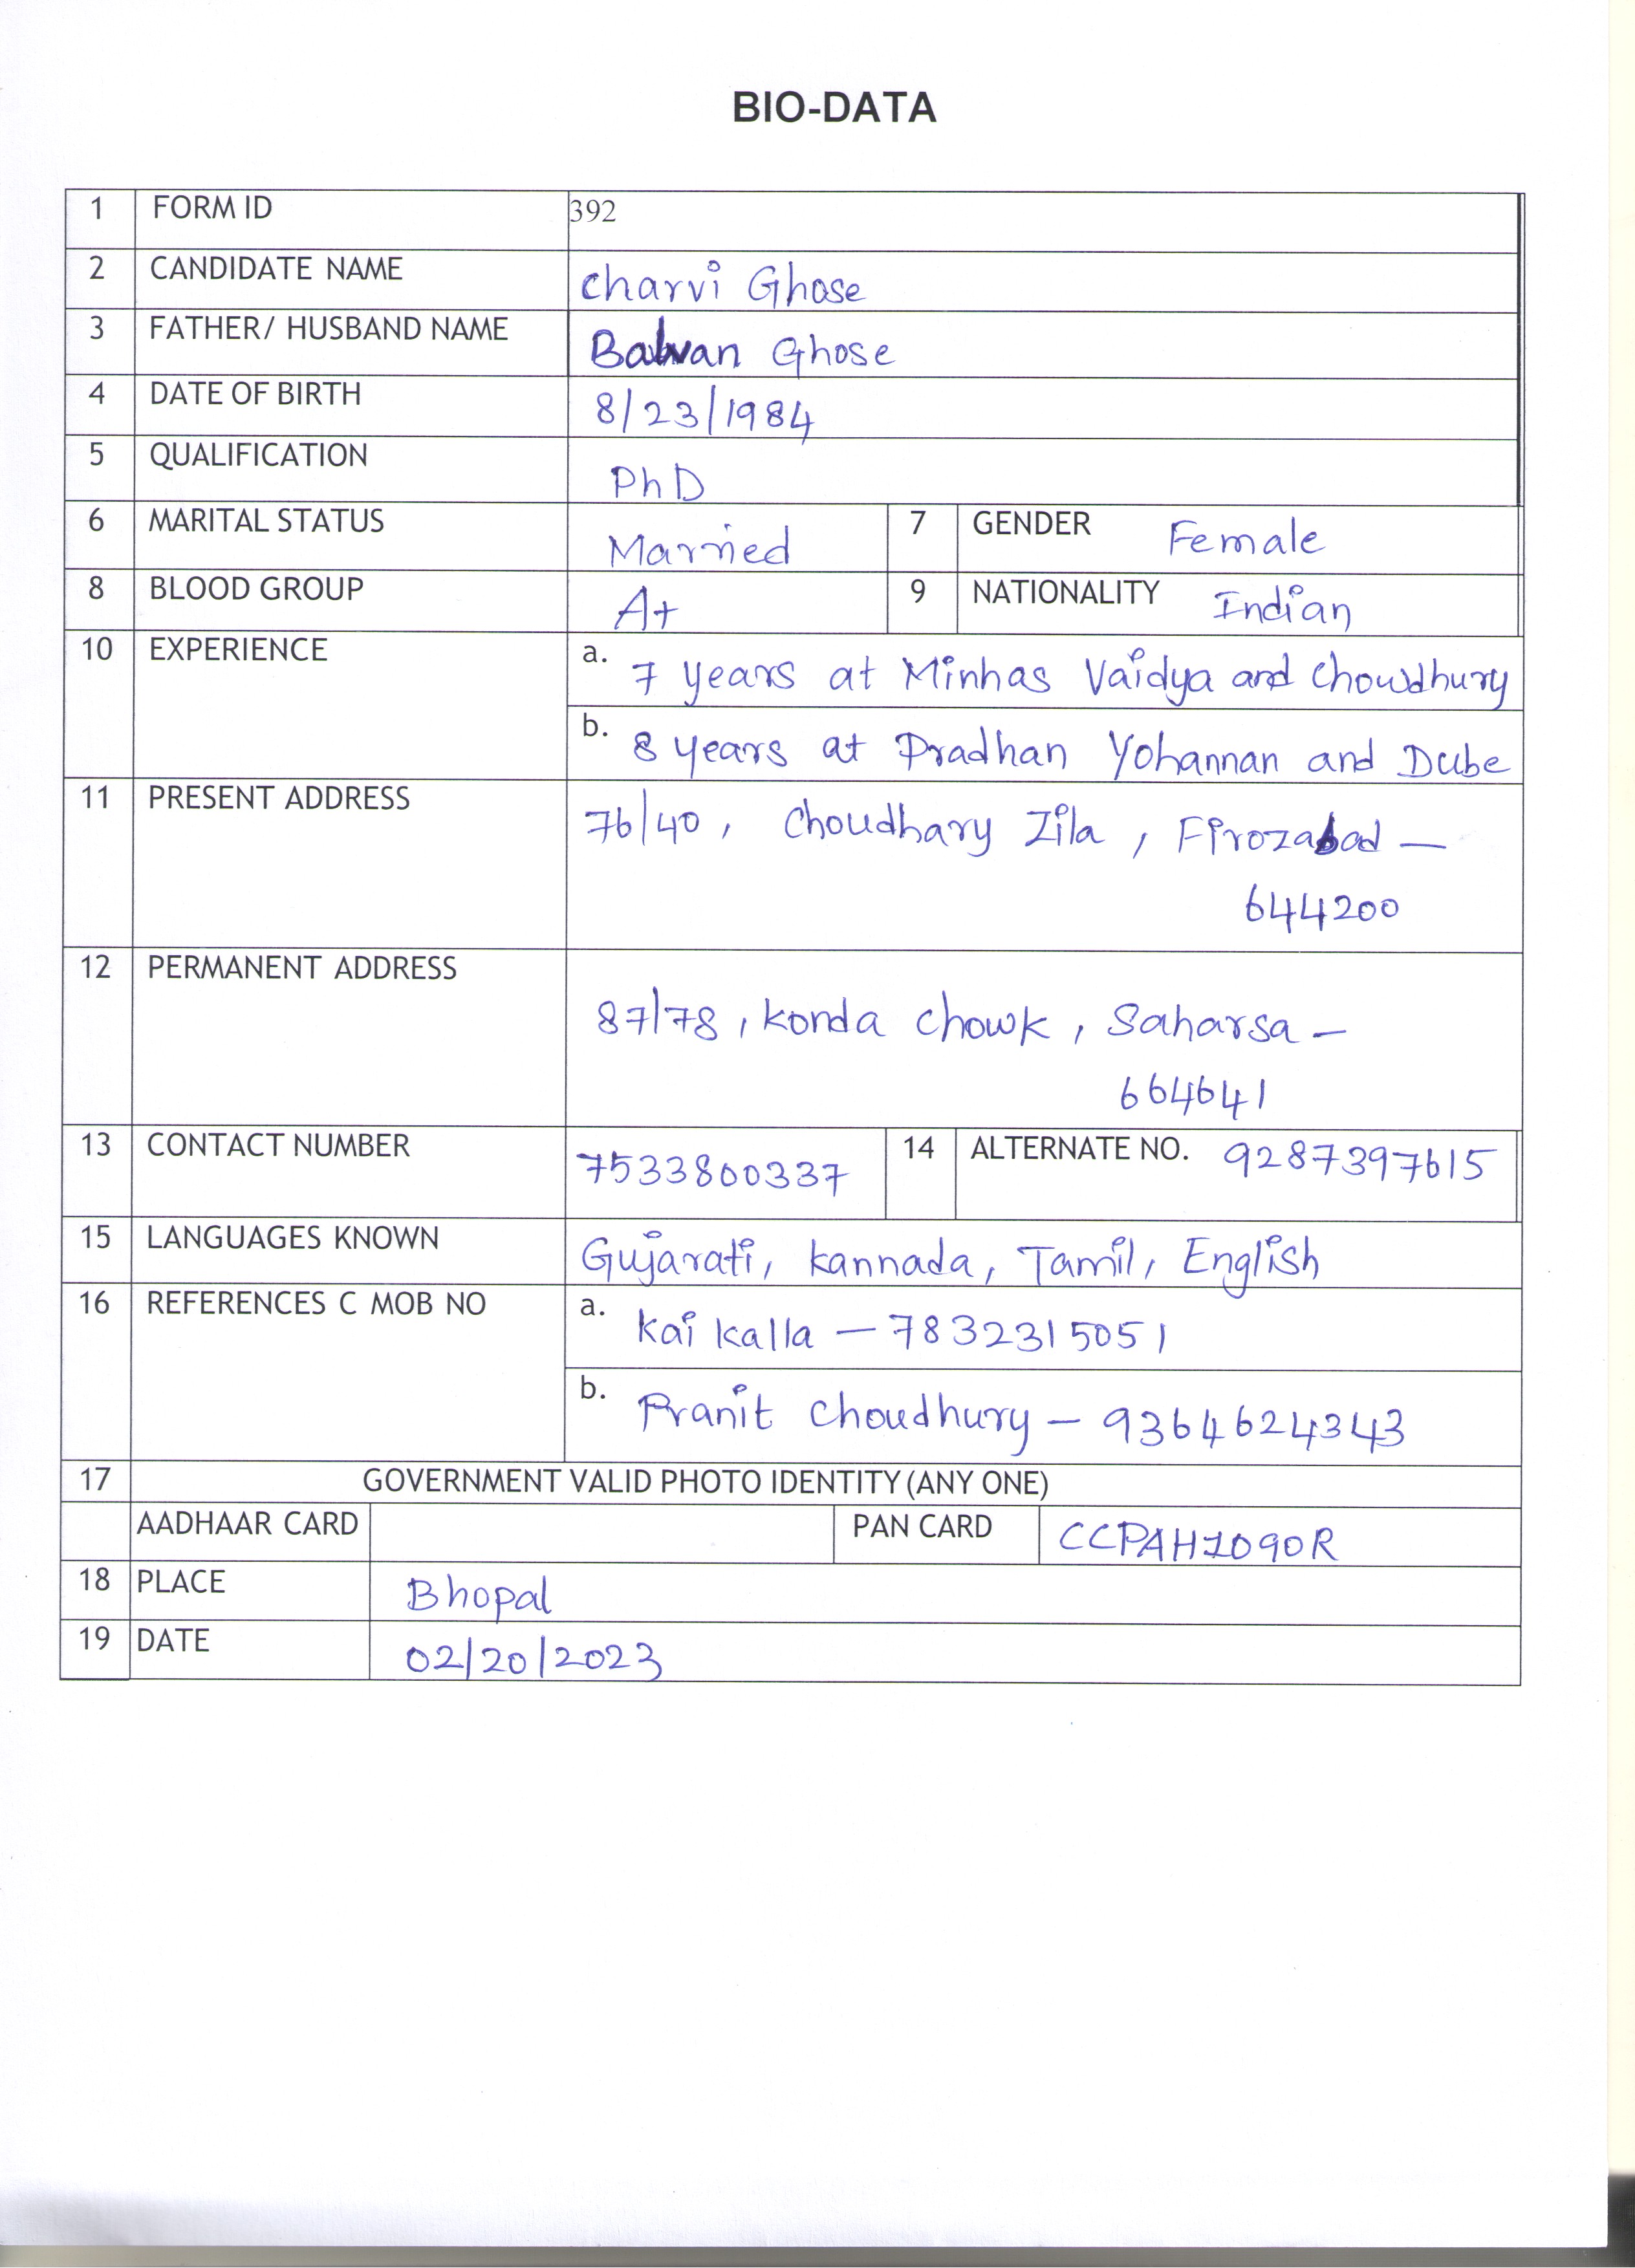 BIO-DATA
1 FORM ID 392
2 CANDIDATE NAME Charvi Ghose
3 FATHER/ HUSBAND NAME Balvan Ghose
4 DATE OF BIRTH 8/23/1984
5 QUALIFICATION PhD
6 MARITAL STATUS Married 7 GENDER Female
8 BLOOD GROUP A+ 9 NATIONALITY Indian
10 EXPERIENCE a. 7 years at Minhas Vaidya and Chowdhury
b. 8 years at Pradhan Yohannan and Dube
11 PRESENT ADDRESS 76/40, Choudhary Zila, Firozabad -
644200
12 PERMANENT ADDRESS
87/78, Konda Chowk, Saharsa -
664641
13 CONTACT NUMBER 7533800337 14 ALTERNATE NO. 9287397615
15 LANGUAGES KNOWN Gujarati, Kannada, Tamil, English
16 REFERENCES C MOB NO a. Kai Kalla - 7832315051
b. Pranit Choudhury - 9364624343
17 GOVERNMENT VALID PHOTO IDENTITY (ANY ONE)
AADHAAR CARD PAN CARD CCPAH1090R
18 PLACE Bhopal
19 DATE 02/20/2023